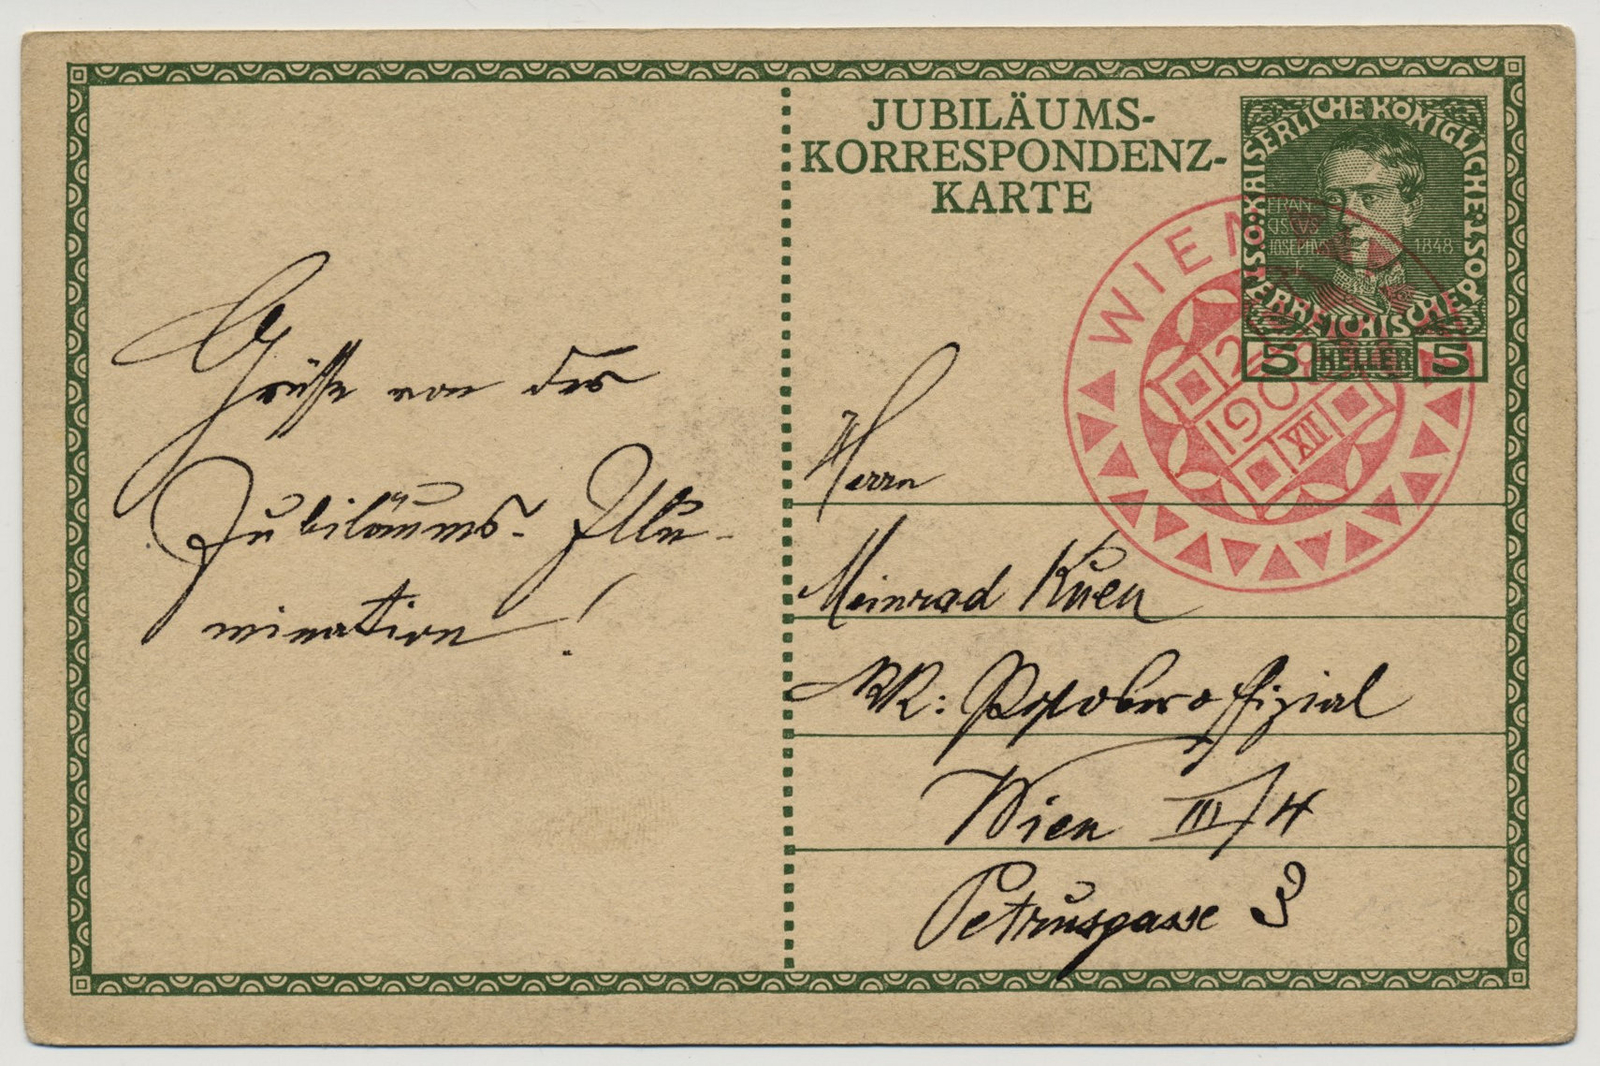 JUBILÄUMS-
KORRESPONDENZ-
KARTE
KAISERLICHE KÖNIGLICHE ÖSTERREICHISCHE POST
FRAN
CISCVS
IOSEPHVS
1848
5 HELLER 5
WIEN
2
1908
XII
Grüsse von der
Jubiläums-Illu-
mination!
Herrn
Meinrad Kuen
KK: Postoberoffizial
Wien III/4
Petrusgasse 3